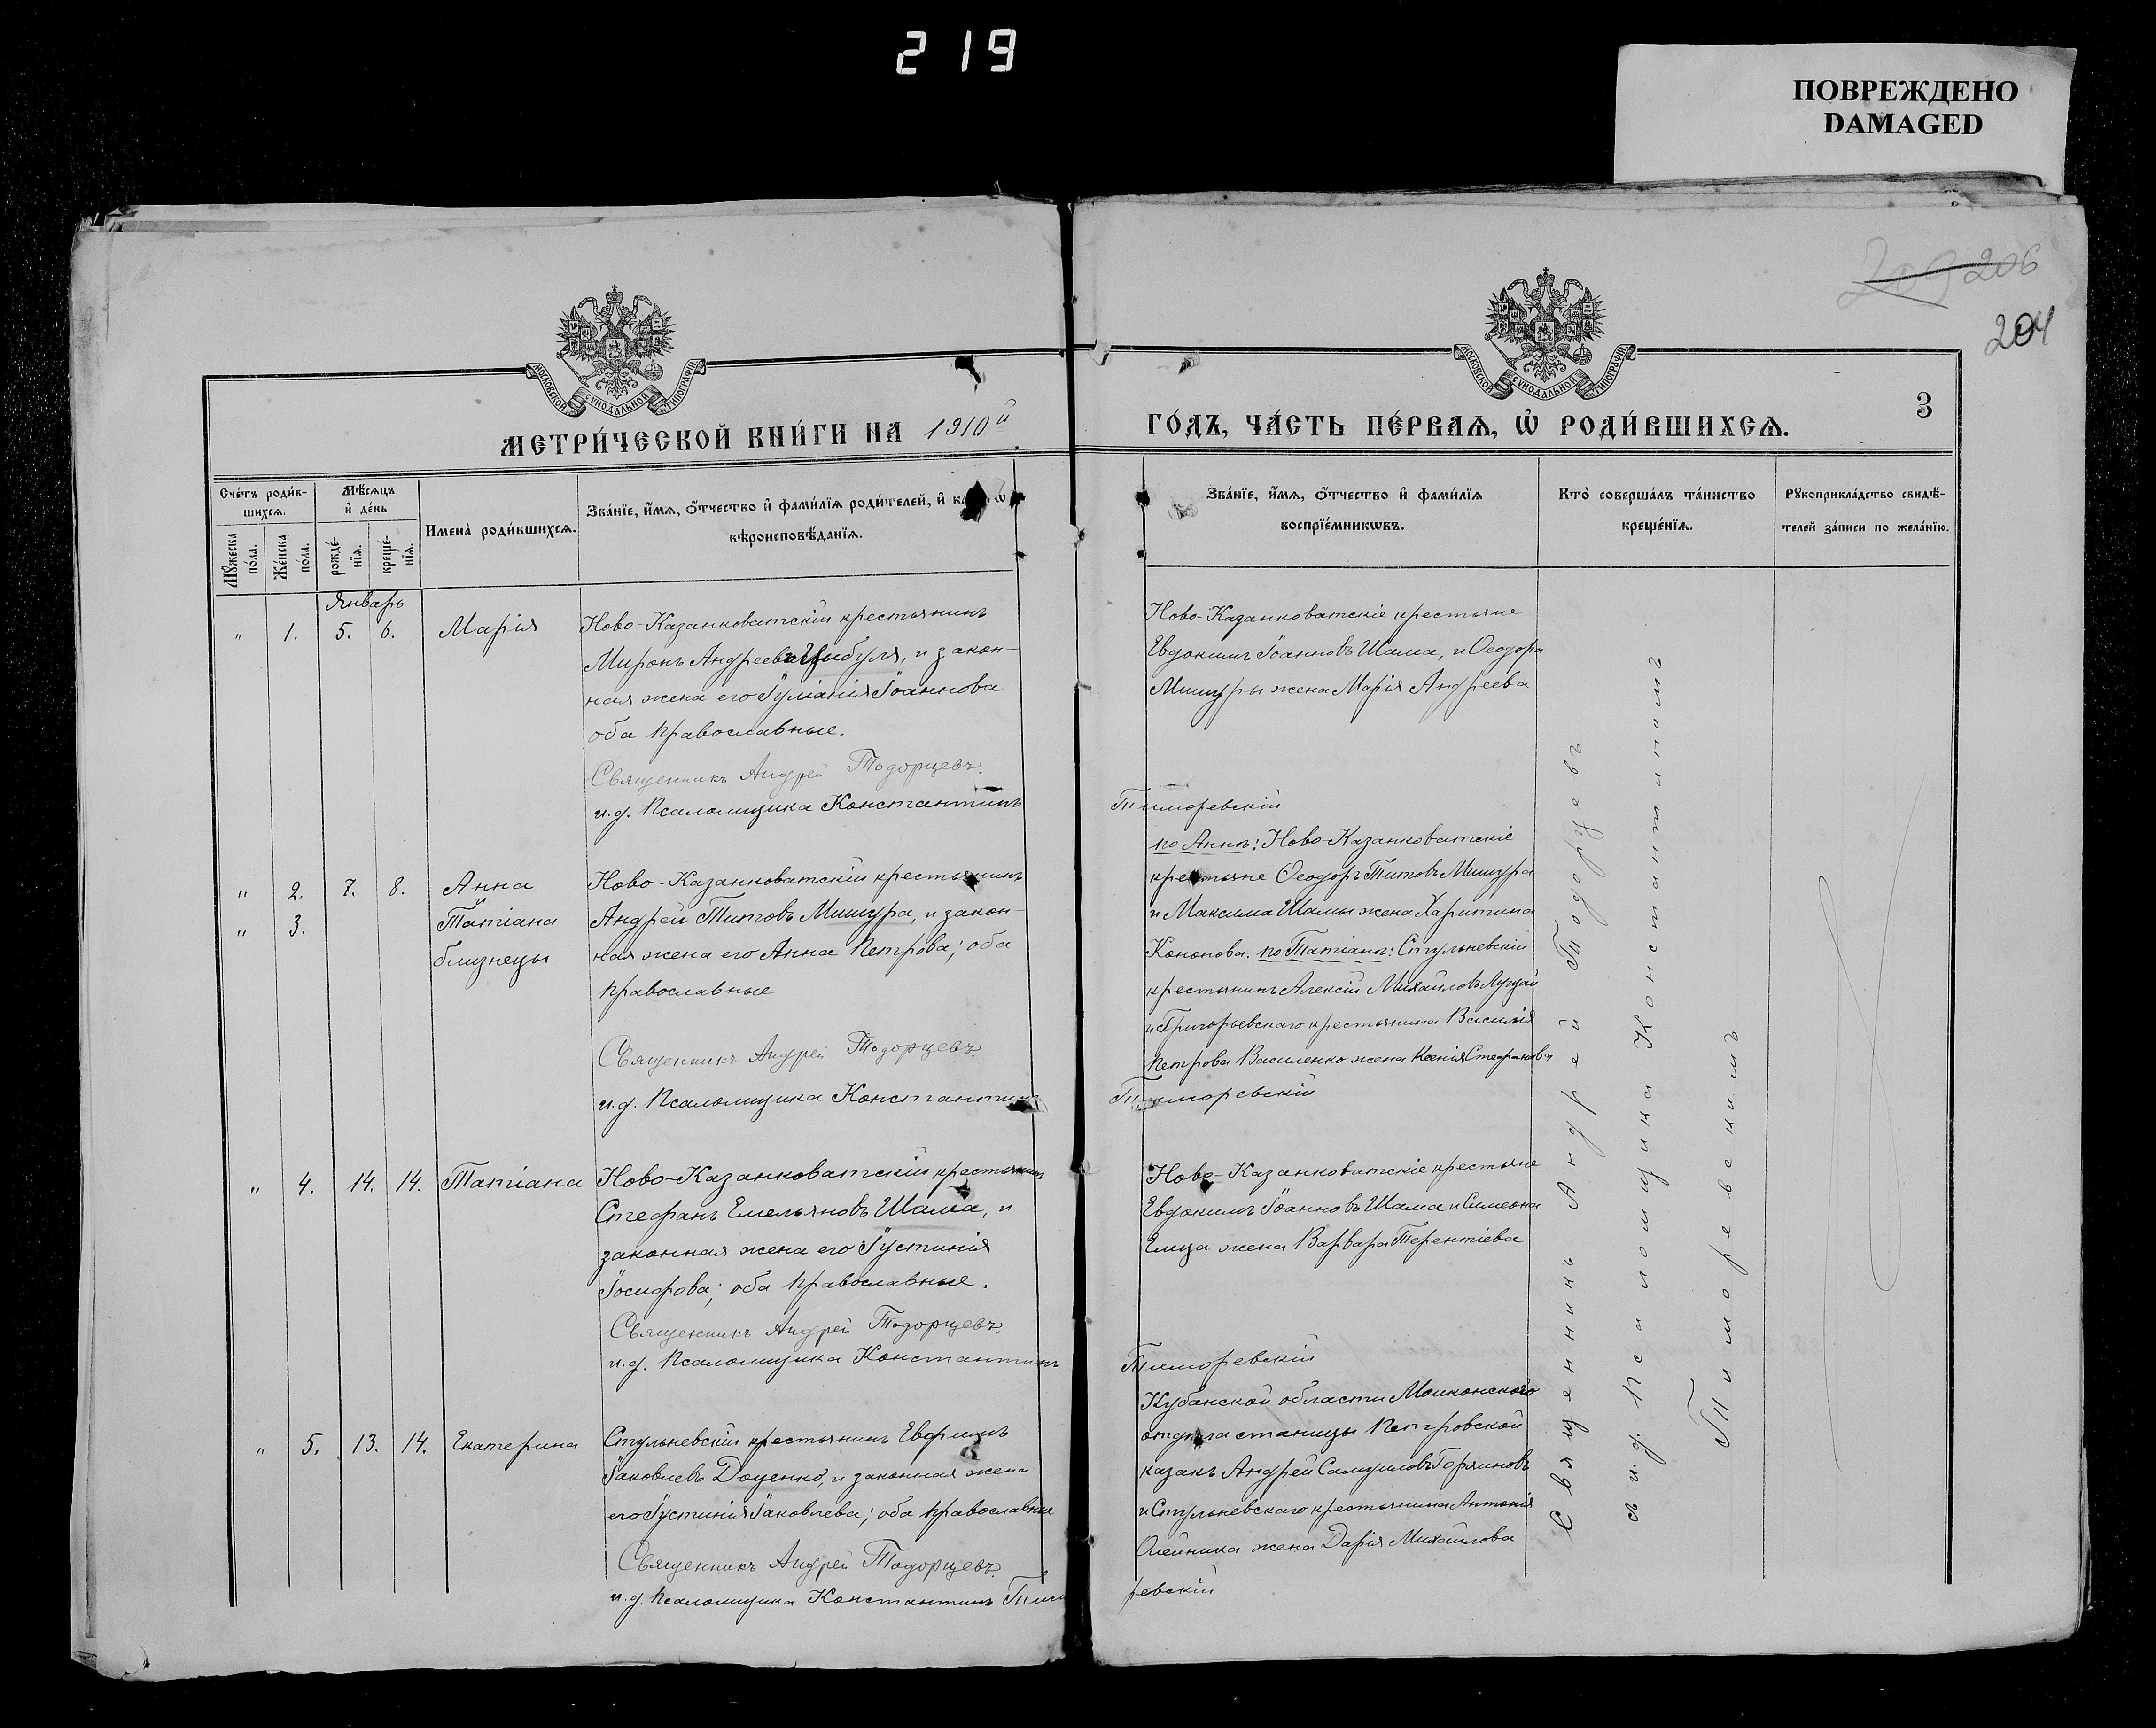 219
ПОВРЕЖДЕНО
DAMAGED
209 206
204
МОСКОВСКОЙ СѴНОДАЛЬНОЙ ТИПОГРАФІИ
МОСКОВСКОЙ СѴНОДАЛЬНОЙ ТИПОГРАФІИ
МЕТРИ́ЧЕСКОЙ КНИ́ГИ НА 1910й
ГО́ДЪ, ЧА́СТЬ ПЕ́РВАѦ, Ѡ҆ РОДИ́ВШИХСѦ.
3
Сче́тъ роди́в-
шихсѧ.
Мꙋ́жеска по́ла.
Же́нска по́ла.
Мѣ́сѧцъ
и҆ де́нь
рожде́-нїѧ.
креще́-нїѧ.
Имена̀ роди́вшихсѧ.
Зва́нїе, и҆́мѧ, ѻ҆́тчество и҆ фами́лїѧ роди́телей, и҆ ѡ
вѣроисповѣ́данїѧ.
Зва́нїе, и҆́мѧ, ѻ҆́тчество и҆ фами́лїѧ
воспрїе́мникѡвъ.
Кто̀ соверша́лъ та́инство
креще́нїѧ.
Рꙋкоприкла́дство свидѣ́-
телей за́писи по жела́нїю.
Январь
" 1. 5. 6. Марія
Ново-Казанковатскій крестьянинъ
Миронъ Андреевъ Цыбуля, и закон-
ная жена его Іуліанія Іоаннова
оба православные.
Священникъ Андрей Тодорцевъ.
и.д. Псаломщика Константинъ Тиморевскій
Ново-Казанковатскіе крестьяне
Евдокимъ Іоанновъ Шама, и Ѳеодора
Мишуры жена Марія Андреева
" 2. 7. 8. Анна
и
" 3. Татіана
близнецы
Ново-Казанковатскій крестьянинъ
Андрей Титовъ Мишура, и закон-
ная жена его Анна Петрова; оба
православные
Священникъ Андрей Тодорцевъ.
и.д. Псаломщика Константинъ Тиморевскій
по Аннѣ: Ново-Казанковатскіе
крестьяне Ѳеодоръ Титовъ Мишура
и Максима Шамы жена Харитина
Кононова. по Татіанѣ: Стульневскій
крестьянинъ Алексій Михайловъ
и Григорьевскаго крестьянина Василія
Петрова Василенко жена Ксенія Стефанова
" 4. 14. 14. Татіана
Ново-Казанковатскій крестьянинъ
Стефанъ Емельяновъ Шама, и
законная жена его Іустинія
Іосифова; оба православные.
Священникъ Андрей Тодорцевъ.
и.д. Псаломщика Константинъ Тиморевскій
Ново-Казанковатскіе крестьяне
Евдокимъ Іоанновъ Шама и Симеона
Емца жена Варвара Терентіева
" 5. 13. 14. Екатерина
Стульневскій крестьянинъ Евфимъ
Іаковлевъ Доценко, и законная жена
его Іустинія Іаковлева; оба православные
Священникъ Андрей Тодорцевъ.
и.д. Псаломщика Константинъ Тиморевскій
Кубанской области Маиконскаго
отдѣла станицы Петровской
казакъ Андрей Самуиловъ Горяиновъ
и Стульневскаго крестьянина Антонія
Олейника жена Дарія Михайлова
Священникъ Андрей Тодорцевъ
съ и.д. Псаломщика Константиномъ
Тиморевскимъ